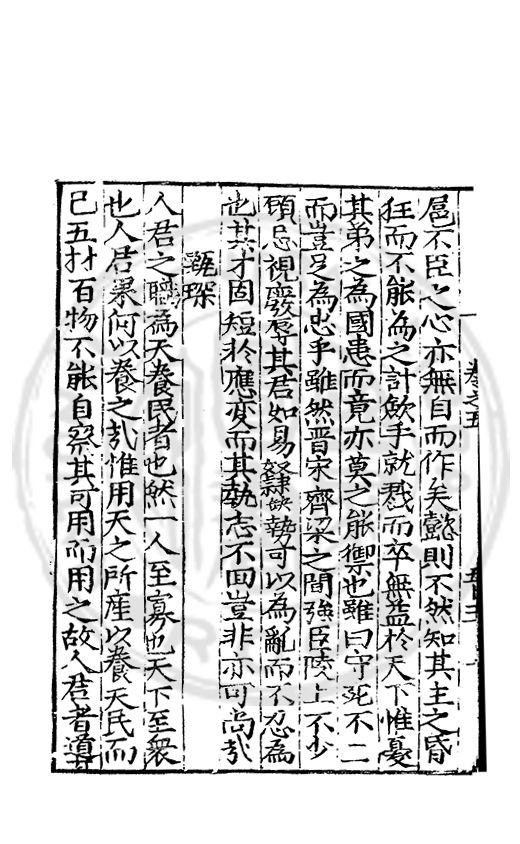 扈不臣之心亦無自而作矣懿則不然知其主之昏
狂而不能為之計歛手就戮而卒無益於天下惟憂
其弟之為國患而竟亦莫之能禦也雖曰守死不二
而豈足為忠乎雖然晋宋齊梁之間強臣陵上不少
顧忌視廢辱其君如易奴隸懿勢可以為亂而不忍為
也其才固短於應変而其執志不回豈非亦可尚哉
甄琛
人君之職為天養民者也然一人至寡也天下至衆
也人君果何以養之哉惟用天之所産以養天民而
已五材百物不能自察其可用而用之故人君者導
卷之五